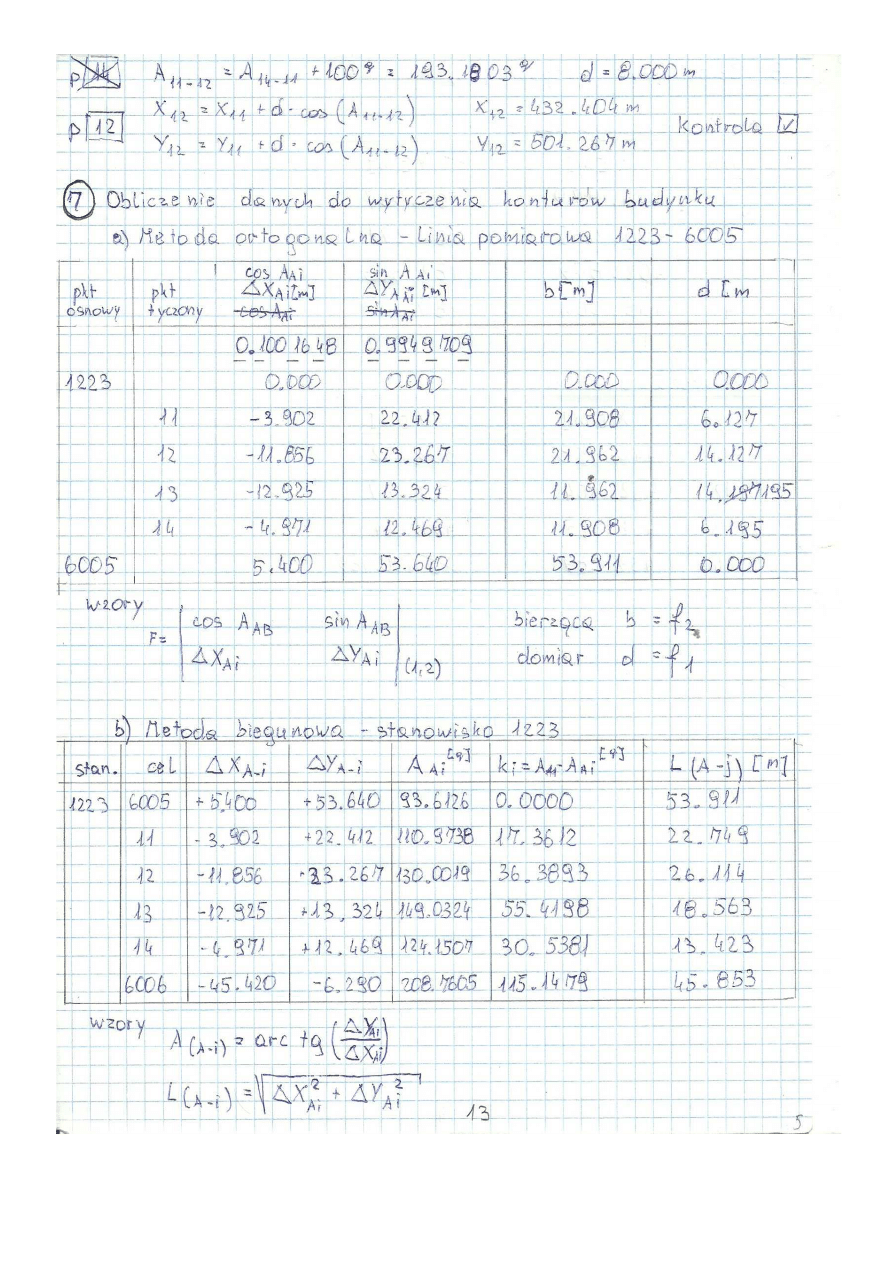 p 11 A11-12 = A14-11 + 100g = 193.1803g d = 8.000 m
p 12 X12 = X11 + d · cos (A11-12) X12 = 432.404 m
Y12 = Y11 + d · cos (A11-12) Y12 = 501.267 m Kontrola ☑
7 Obliczenie danych do wytyczenia konturów budynku
a) Metoda ortogonalna - linia pomiarowa 1223-6005
cos AAi sin AAi
pkt osnowy pkt tyczony ΔXAi [m] ΔYAi [m] b [m] d [m
cos AAi sin AAi
0.1001648 0.9949709
1223 0.000 0.000 0.000 0.000
11 -3.902 22.412 21.908 6.127
12 -11.856 23.267 21.962 14.127
13 -12.925 13.324 11.962 14.197195
14 -4.971 12.469 11.908 6.195
6005 5.400 53.640 53.911 0.000
wzory
F= cos AAB sin AAB bierząca b = f2
ΔXAi ΔYAi (1,2) domiar d = f1
b) Metoda biegunowa - stanowisko 1223
stan. cel ΔXA-i ΔYA-i AAi [g] ki = AAi-AAi [g] L (A-j) [m]
1223 6005 +5.400 +53.640 93.6126 0.0000 53.911
11 -3.902 +22.412 110.9738 17.3612 22.749
12 -11.856 +23.267 130.0019 36.3893 26.114
13 -12.925 +13,324 149.0324 55.4198 18.563
14 -4.971 +12.469 124.1507 30.5381 13.423
6006 -45.420 -6.290 208.7605 115.1479 45.853
wzory
A(A-i) = arc tg (ΔYAi/ΔXAi)
L(A-i) = √ΔXAi² + ΔYAi²
13
5